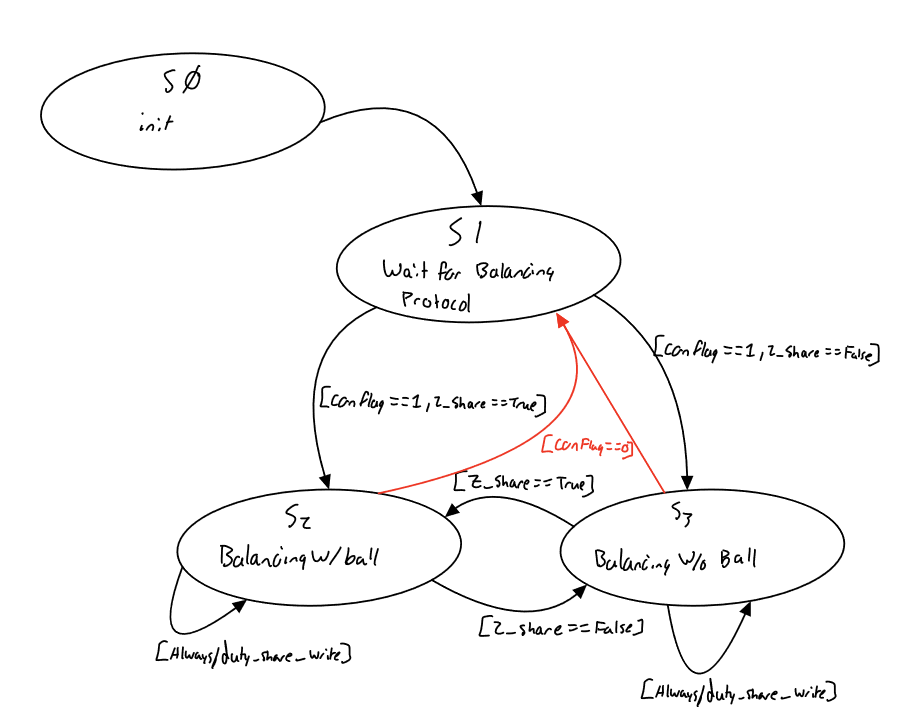 S0
init
S1
Wait for Balancing
Protocol
[ConFlag==1, Z_share==False]
[ConFlag==1, Z_share==True]
[ConFlag==0]
[Z_share==True]
S2
Balancing W/ ball
S3
Balancing W/o Ball
[Z_share==False]
[Always/duty_share_write]
[Always/duty_share_write]